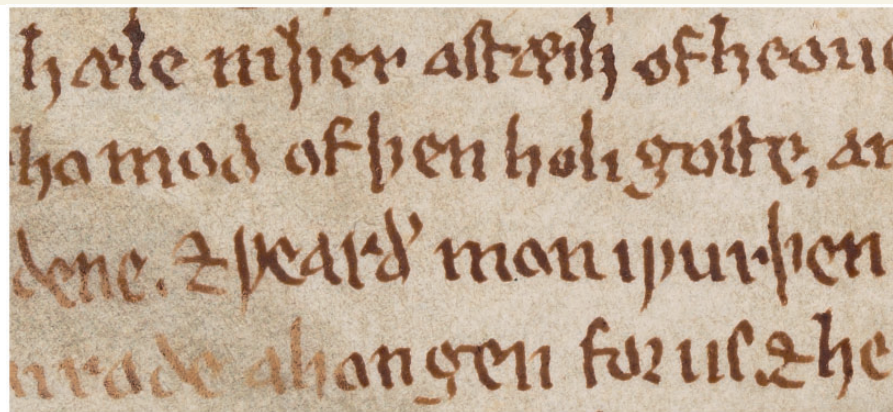 hæle niþer astæih of heoue
homod of þen holi goste, an
dene. ⁊ ƿearð mon iƿurþen
nrode ahongen for us. ⁊ he